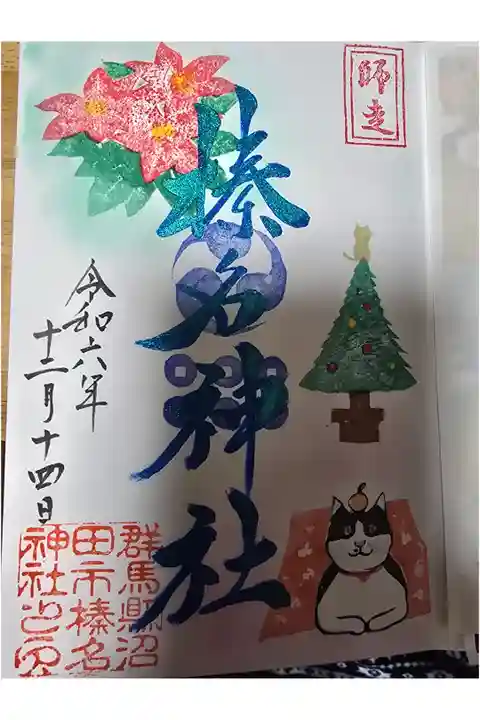 師走
榛名神社
令和六年
十二月十四日
群馬縣沼
田市榛名
神社之印